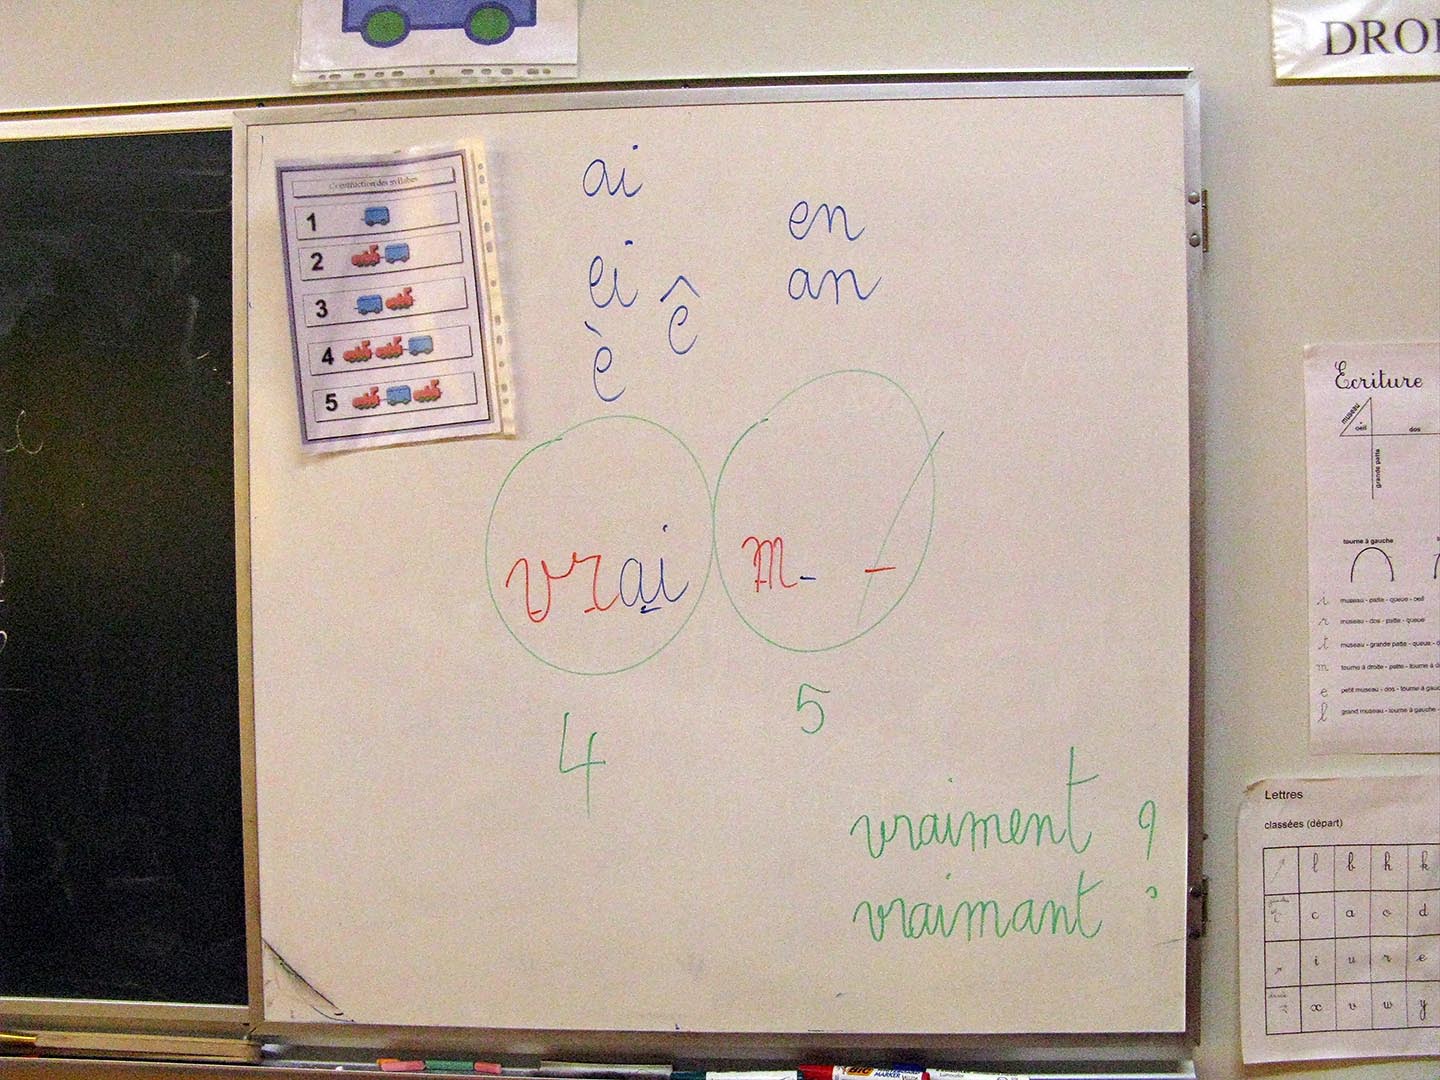 DROI
Construction des syllabes
1
2
3
4
5
ai
ei ê
è
en
an
vrai m- -
4
5
vraiment ?
vraimant ?
Ecriture
museau
oeil
dos
grande patte
tourne à gauche
i museau - patte - queue - oeil
r museau - dos - patte - queue
t museau - grande patte - queue -
m tourne à droite - patte - tourne à
e petit museau - dos - tourne à
l grand museau - tourne à gauche -
Lettres
classées (départ)
l b h k
c a o d
i u r e
x v w y
BIC
MARKER